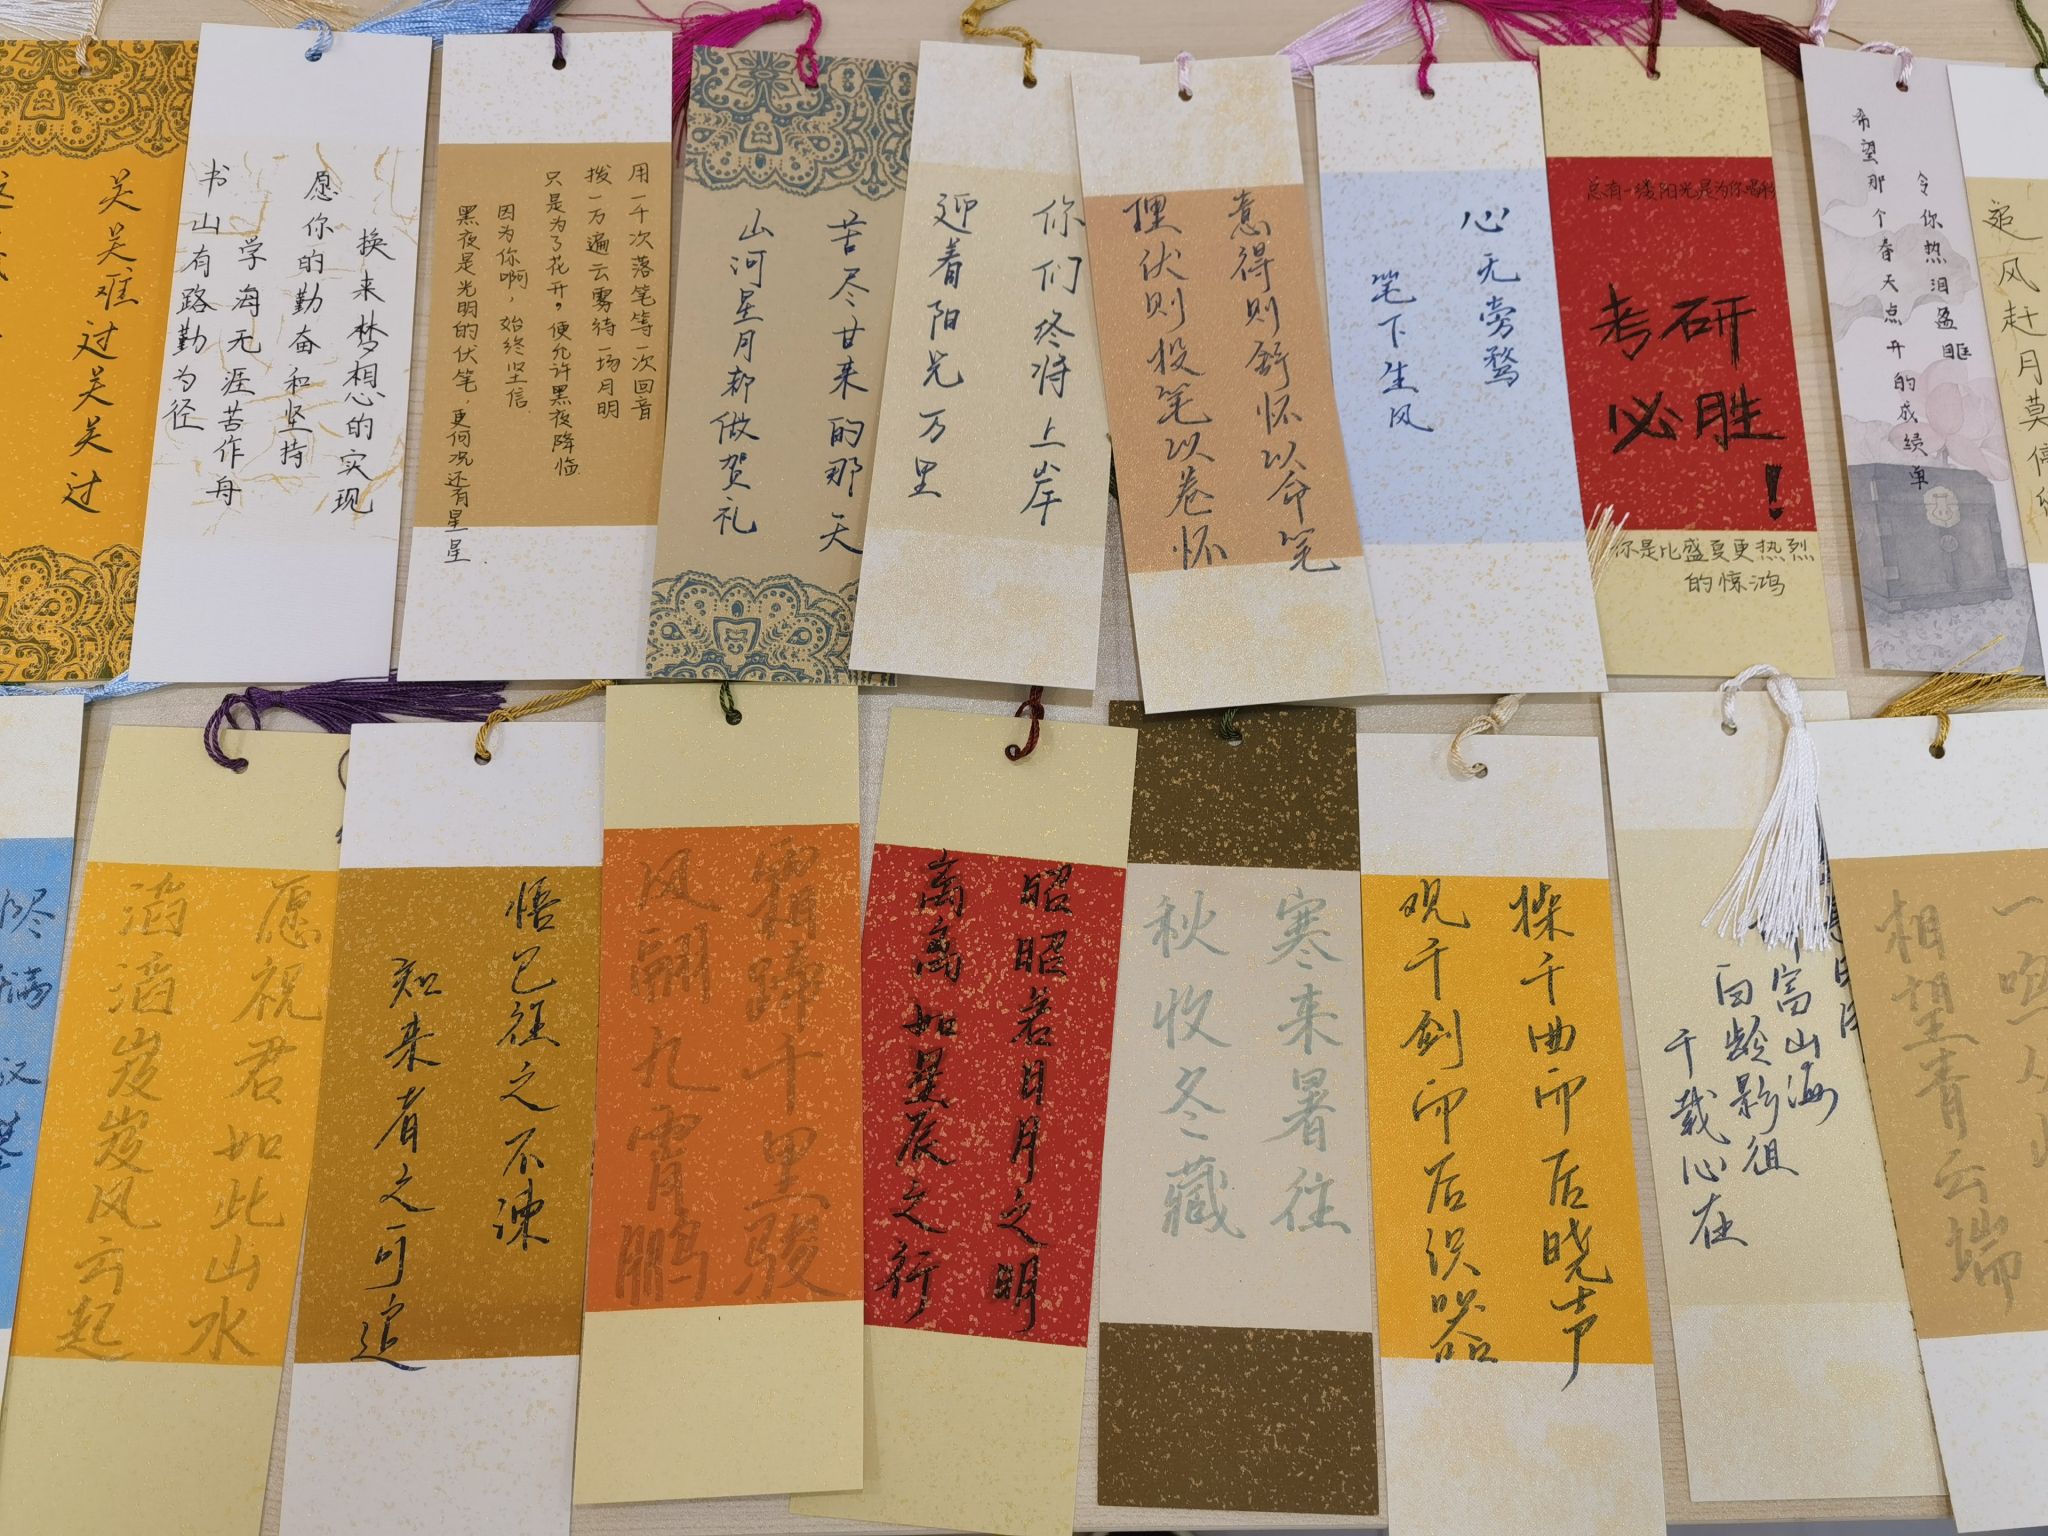 关关难过关关过
书山有路勤为径
学海无涯苦作舟
愿你的勤奋和坚持
换来梦想的实现
用一千次落笔等一次回音
拨一万遍云雾待一场月明
只是为了花开。便允许黑夜降临
因为你啊,始终坚信
黑夜是光明的伏笔,更何况还有星星
苦尽甘来的那天
山河星月都做贺礼
你们终将上岸
迎着阳光万里
意得则舒怀以命笔
理伏则投笔以卷怀
心无旁骛
笔下生风
总有一缕阳光是为你
考研
必胜!
你是比盛夏更热烈
的惊鸿
希望那个春天点开的成绩单
令你热泪盈眶
追风赶月莫停
愿祝君如此山水
滔滔岌岌风云起
悟已往之不谏
知来者之可追
霜蹄千里骏
风翮九霄鹏
昭昭若日月之明
离离如星辰之行
寒来暑往
秋收冬藏
操千曲而后晓声
观千剑而后识器
富山海
百龄影徂
千载心在
相望青云端